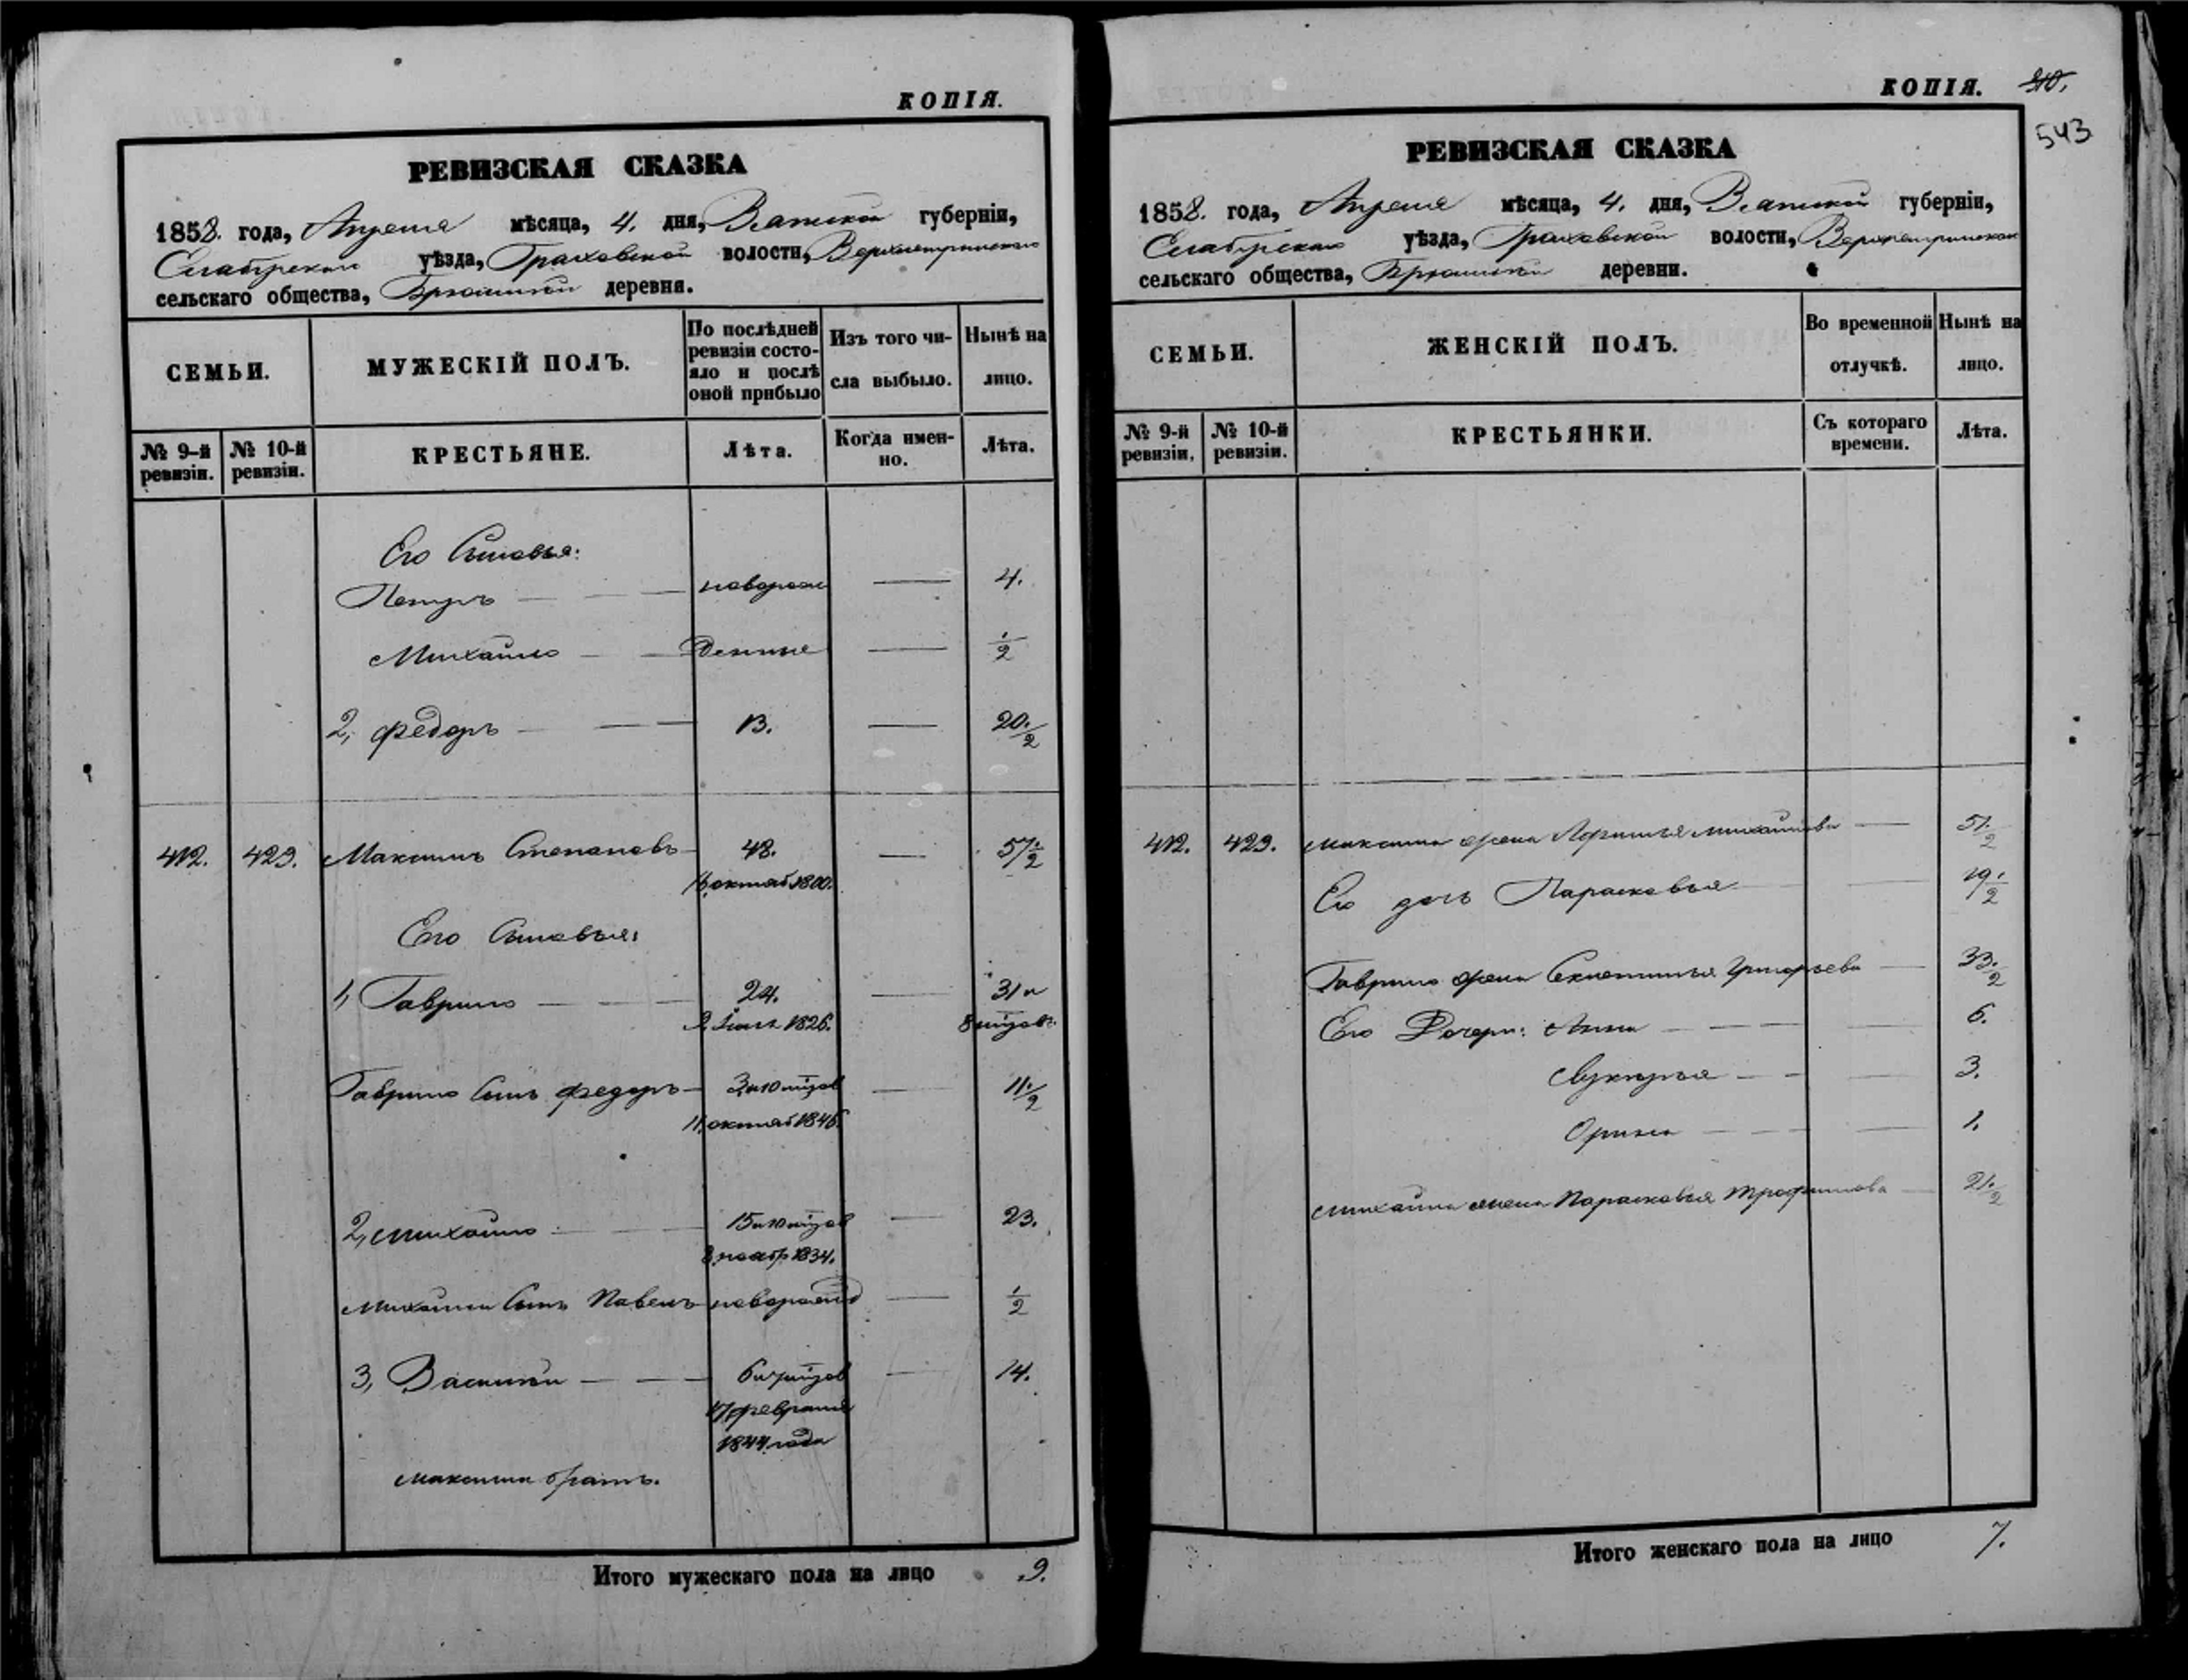 КОПІЯ.
РЕВИЗСКАЯ СКАЗКА
1858. года, Апреля мѣсяца, 4. дня, Вятской губерніи,
Елабугскаго уѣзда, Граховской волости,
сельскаго общества, деревня.
СЕМЬИ.
МУЖЕСКІЙ ПОЛЪ.
По послѣдней ревизіи состо-
яло и послѣ оной прибыло
Изъ того чи-
сла выбыло.
Нынѣ на
лицо.
№ 9-й ревизіи.
№ 10-й ревизіи.
КРЕСТЬЯНЕ.
Лѣта.
Когда имен-
но.
Лѣта.
Его Сыновья:
Петръ — — новорож — 4.
Михайло — денные — 1/2
2, Федоръ — — 13. — 20 1/2
412. 423. Максимъ Степановъ 48. — 57 1/2
16 октяб 1800.
Его Сыновья:
1, Гаврило — — 24. — 31 и
1826. 8 мцовъ
Гаврило Сынъ Федоръ 3 и 10 мцов — 11 1/2
11 октяб 1846
2, Михайло — 15 и 10 мцов — 23.
8 ноябр 1834.
Михайла Сынъ Павелъ новорожд — 1/2
3, Василий — — 6 и мцов — 14.
17 февраля
1844 года
Максима братъ.
Итого мужескаго пола на лицо 9.
КОПІЯ.
543
РЕВИЗСКАЯ СКАЗКА
1858. года, Апреля мѣсяца, 4. дня, Вятской губерніи,
Елабугскаго уѣзда, Граховской волости,
сельскаго общества, деревни.
СЕМЬИ.
ЖЕНСКІЙ ПОЛЪ.
Во временной
отлучкѣ.
Нынѣ на
лицо.
№ 9-й ревизіи.
№ 10-й ревизіи.
КРЕСТЬЯНКИ.
Съ котораго
времени.
Лѣта.
412. 423. Максима жена Михайлова — 51 1/2
Его дочь Парасковья — 19 1/2
Гаврило жена Григорьева — 33 1/2
Его Дочери: Анна — — 6.
Лукерья — — 3.
Орина — — 1.
Михайла жена Парасковья Трофимова — 21 1/2
Итого женскаго пола на лицо 7.